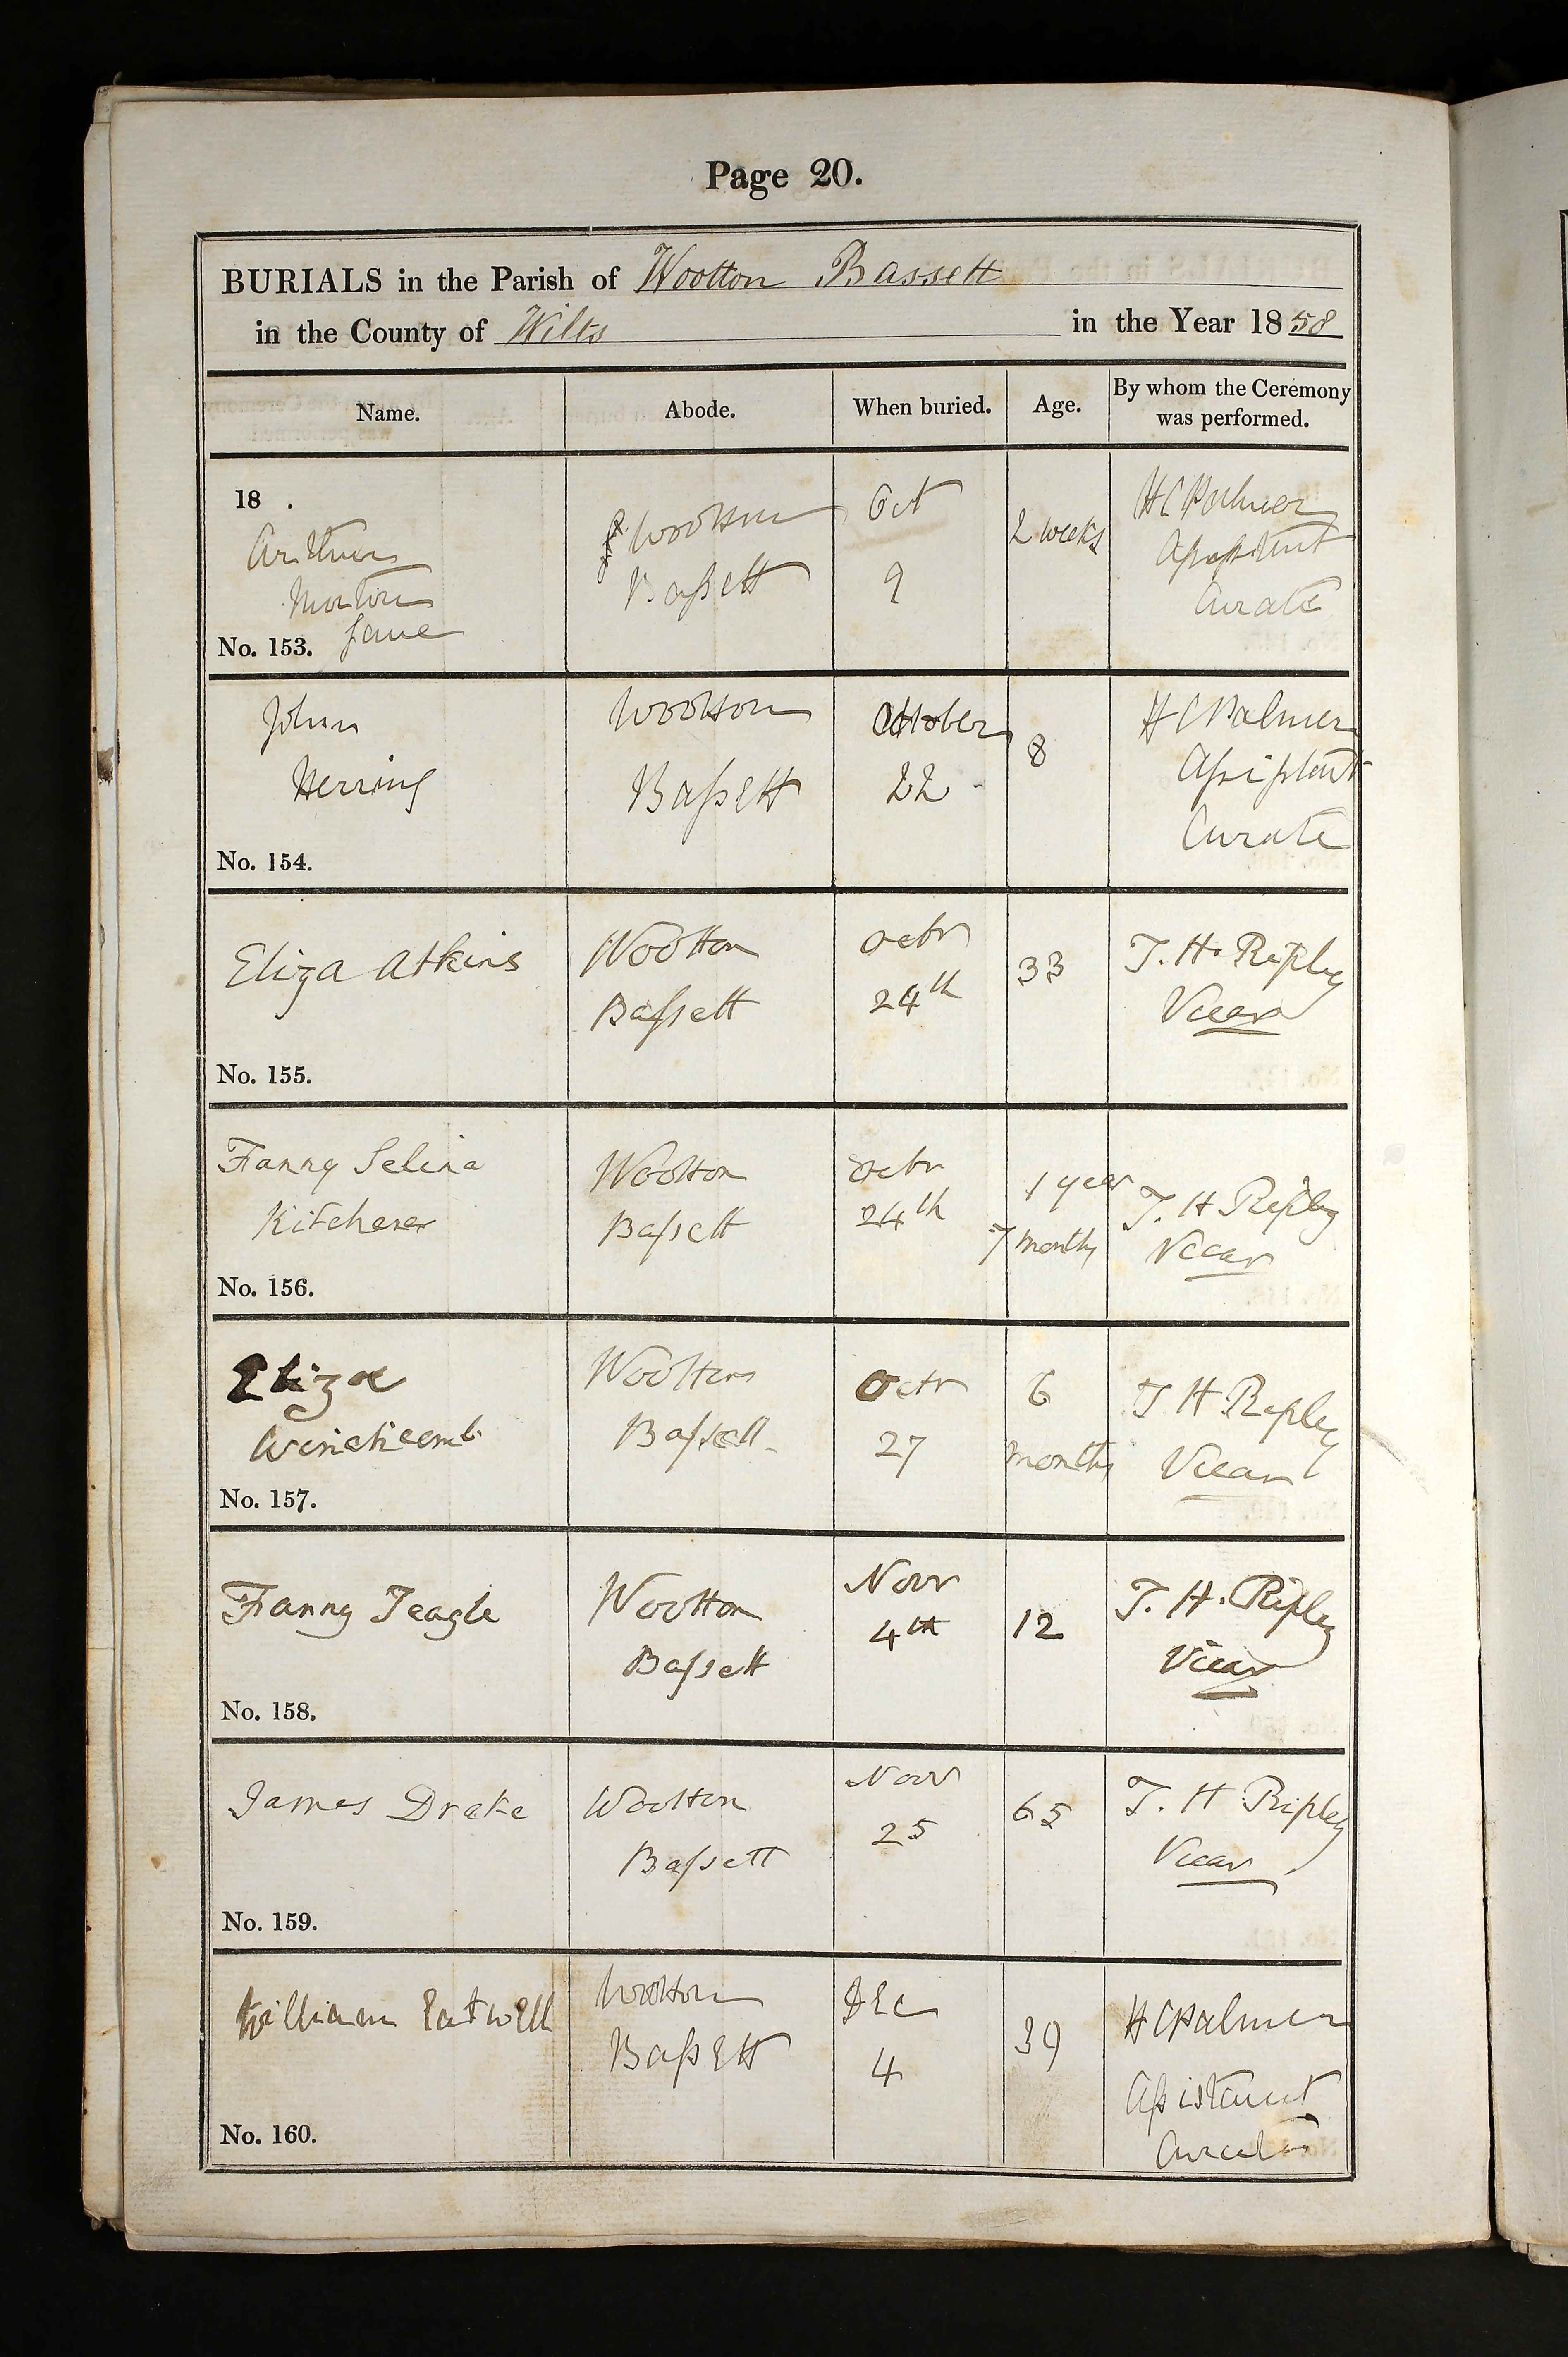 Page 20.
BURIALS in the Parish of Wootton Bassett
in the County of Wilts in the Year 1858
Name. Abode. When buried. Age. By whom the Ceremony was performed.
18 .
Arthur Wootton Oct 2 weeks H C Palmer
Morton Bassett 9 Assistant
Jane Curate
No. 153.
John Wootton October 8 H C Palmer
Herring Bassett 22 Assistant
Curate
No. 154.
Eliza Atkins Wootton Octr 33 T. H. Ripley
Bassett 24th Vicar
No. 155.
Fanny Selina Wootton Octr 1 year T. H Ripley
Kitchener Bassett 24th 7 months Vicar
No. 156.
Eliza Wootton Octr 6 T H Ripley
Winchcomb Bassett 27 months Vicar
No. 157.
Fanny Teagle Wootton Novr 12 T. H. Ripley
Bassett 4th Vicar
No. 158.
James Drake Wootton Novr 65 T. H Ripley
Bassett 25 Vicar
No. 159.
William Eatwell Wootton Dec 39 H C Palmer
Bassett 4 Assistant
Curate
No. 160.